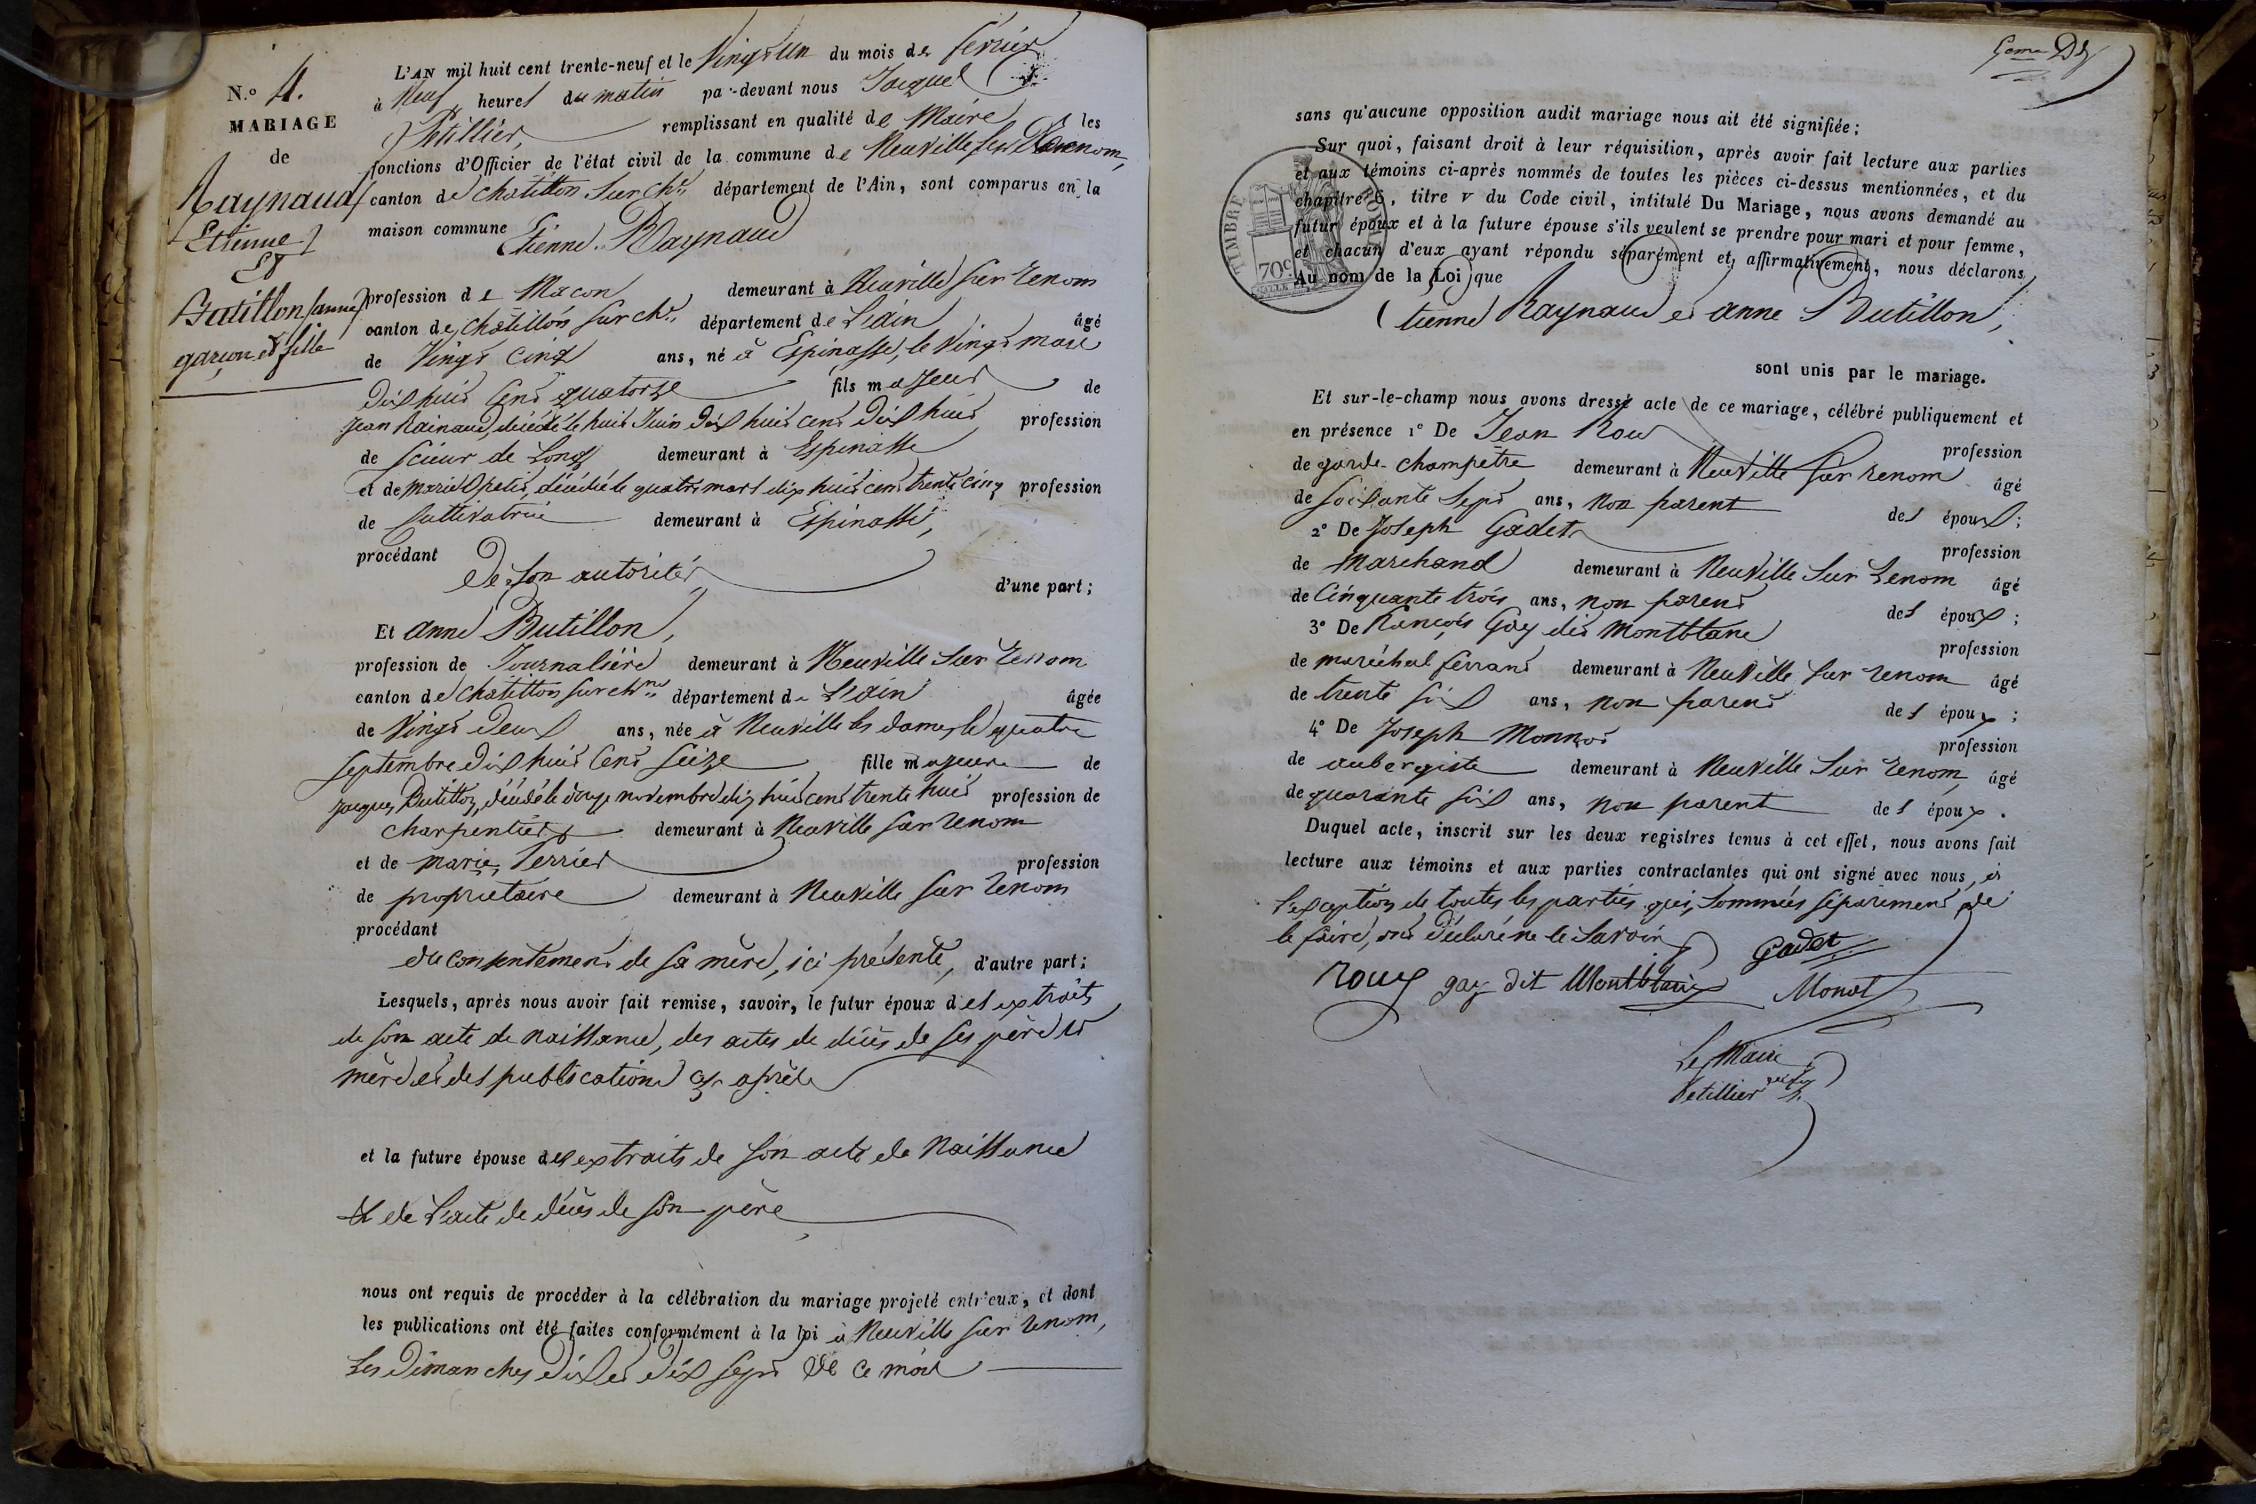 N.o 4.
MARIAGE
de
Raynaud
Etienne
Et
Butillon anne
garçon et fille
L'AN mil huit cent trente-neuf et le Vingt un du mois de fevrier
à Neuf heures du matin par-devant nous Jacques
Petillier, remplissant en qualité de Maire les
fonctions d'Officier de l'état civil de la commune de Neuville sur Renom,
canton de chatillon sur chne département de l'Ain, sont comparus en la
maison commune Etienne Raynaud
profession de Macon demeurant à Neuville sur renom
canton de chatillon sur chne département de L'ain âgé
de Vingt cinq ans, né à Espinasse, le Vingt mars
dix huit Cent quatorze fils majeur de
Jean Rainaud, décédé le huit Juin dix huit cent dix huit profession
de scieur de Long demeurant à Espinasse
et de Marie décédée le quatre mars dix huit cent trente cinq profession
de Cultivatrice demeurant à Espinasse,
procédant
de son autorité, d'une part;
Et anne Butillon,
profession de Journalière demeurant à Neuville sur renom
canton de chatillon sur chne département de L'ain âgée
de Vingt deux ans, née à Neuville les dames, le quatre
septembre dix huit Cent seize fille majeure de
jacques Butillon, décédé le douze novembre dix huit cent trente huit profession de
charpentier demeurant à Neuville sur renom
et de marie Terrier profession
de proprietaire demeurant à Neuville sur renom
procédant
du consentement de sa mère, ici présente, d'autre part;
Lesquels, après nous avoir fait remise, savoir, le futur époux des extraits
de son acte de naissance, des actes de décès de ses père et
mère et des publications cy après
et la future épouse des extraits de son acte de naissance
et de l'acte de décès de son père,
nous ont requis de procéder à la célébration du mariage projeté entr'eux, et dont
les publications ont été faites conformément à la loi à Neuville sur renom,
Les Dimanches dix et dix sept de ce mois
sans qu'aucune opposition audit mariage nous ait été signifiée;
Sur quoi, faisant droit à leur réquisition, après avoir fait lecture aux parties
et aux témoins ci-après nommés de toutes les pièces ci-dessus mentionnées, et du
chapitre 6, titre v du Code civil, intitulé Du Mariage, nous avons demandé au
futur époux et à la future épouse s'ils veulent se prendre pour mari et pour femme,
et chacun d'eux ayant répondu séparément et affirmativement, nous déclarons
Au nom de la Loi que
TIMBRE ROYAL
70c
Etienne Raynaud et anne Butillon,
sont unis par le mariage.
Et sur-le-champ nous avons dressé acte de ce mariage, célébré publiquement et
en présence 1° De Jean Roux profession
de garde-champêtre demeurant à Neuville sur renom âgé
de soixante sept ans, non parent des époux;
2° De Joseph Gadet profession
de Marchand demeurant à Neuville sur renom âgé
de Cinquante trois ans, non parent des époux;
3° De François Gay dit Montblanc profession
de maréchal ferrant demeurant à Neuville sur renom âgé
de trente six ans, non parent des époux;
4° De Joseph Monnot profession
de aubergiste demeurant à Neuville sur renom, âgé
de quarante six ans, non parent des époux.
Duquel acte, inscrit sur les deux registres tenus à cet effet, nous avons fait
lecture aux témoins et aux parties contractantes qui ont signé avec nous, à
l'exception de toutes les parties qui, sommées séparément de
le faire, ont déclaré ne le savoir
Gadet
Roux gay dit Montblanc Monot
Le Maire
Petillier